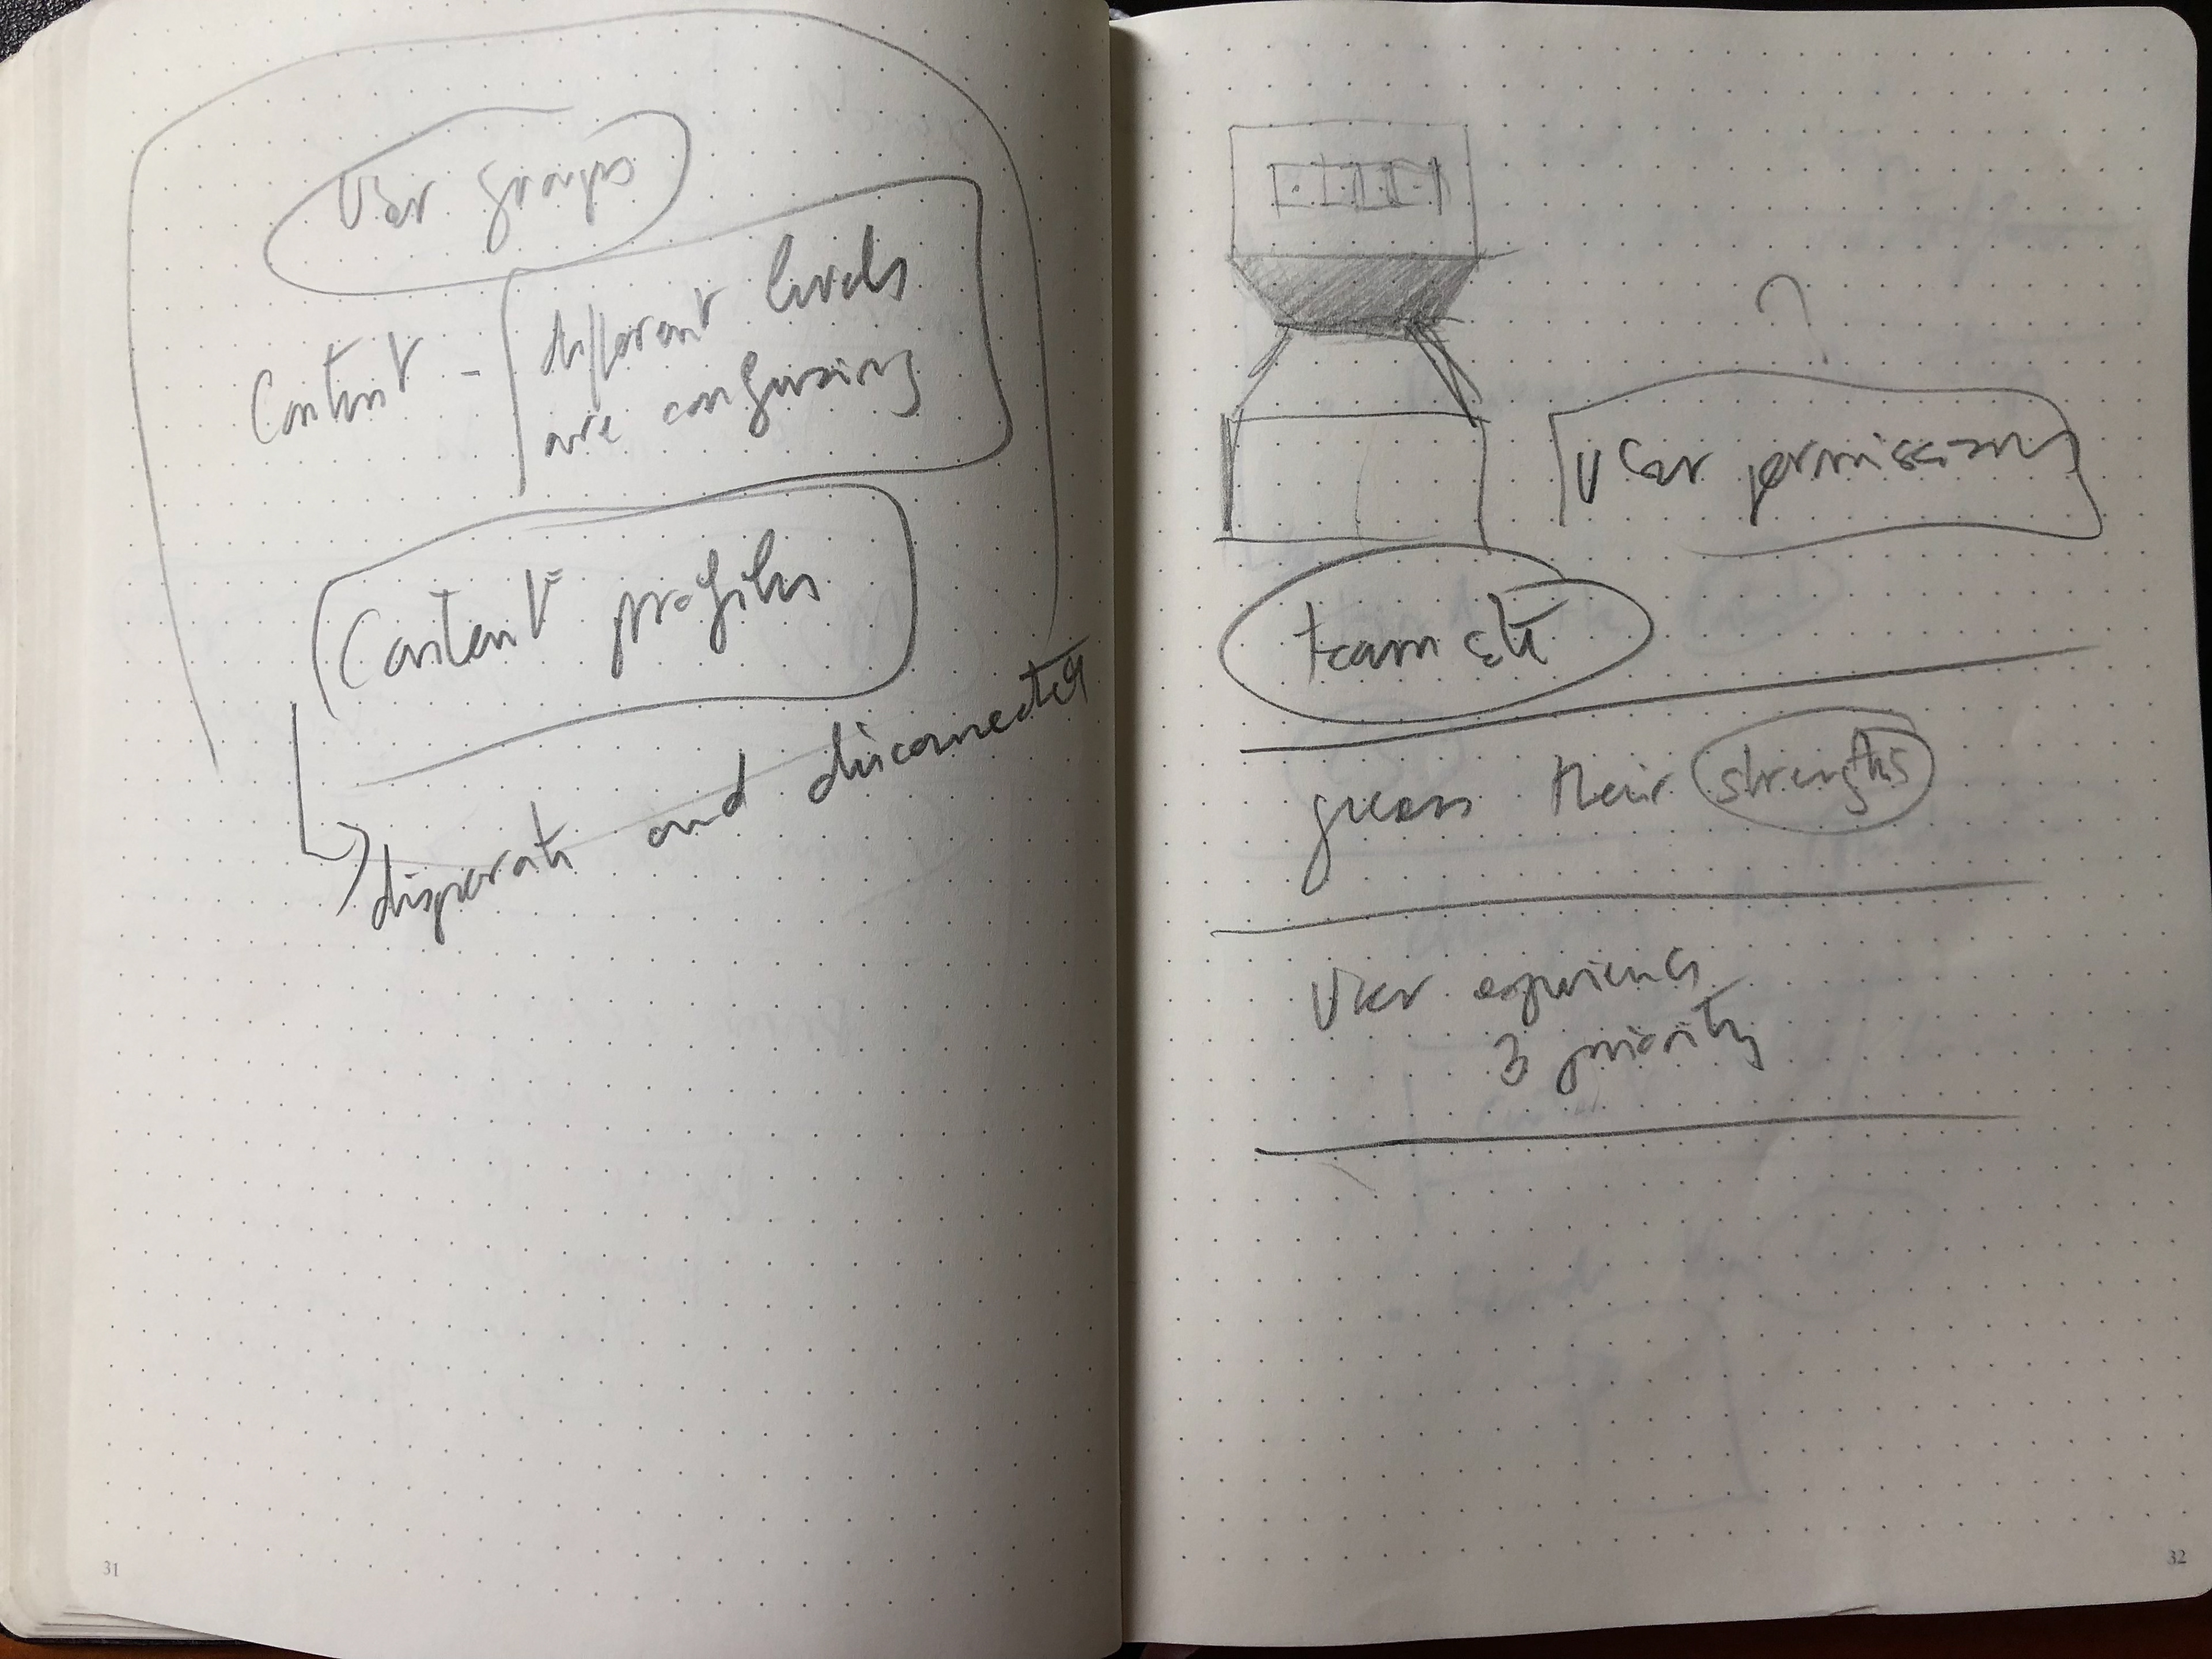 User groups
Content - different levels
are confusing
Content profiles
disparate and disconnected
31
?
User permissions
team
guess their strengths
User experience
3 priority
32